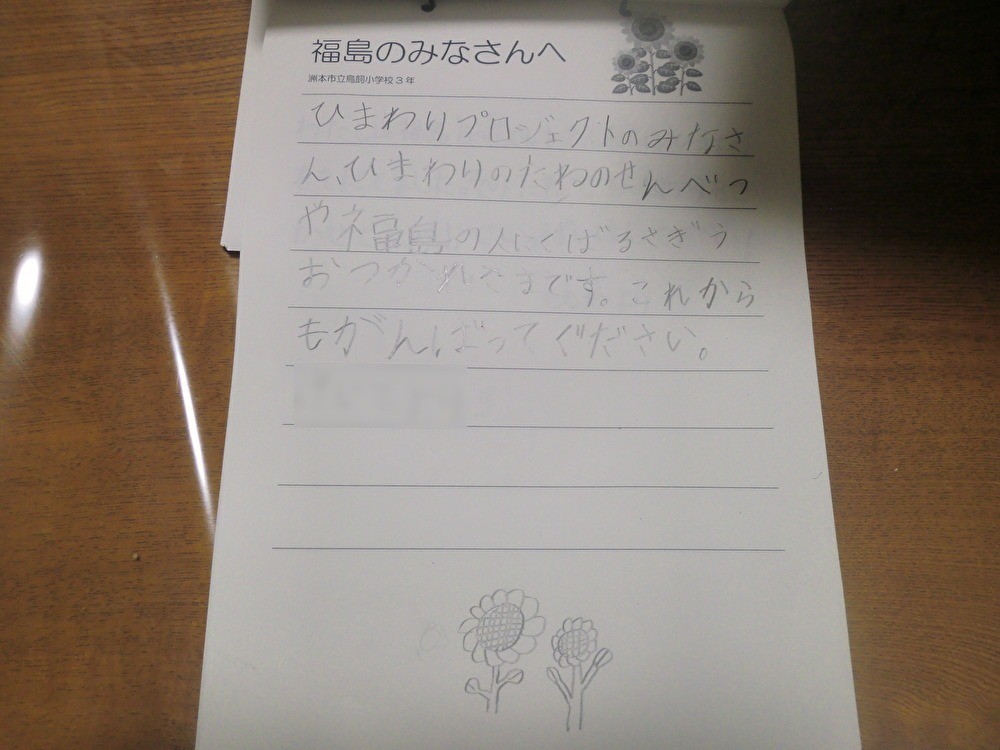 福島のみなさんへ
洲本市立鳥飼小学校3年
ひまわりプロジェクトのみなさ
ん、ひまわりのたねのせんべつ
や福島の人にくばるさぎう
おつかれさまです。これから
もがんばってください。